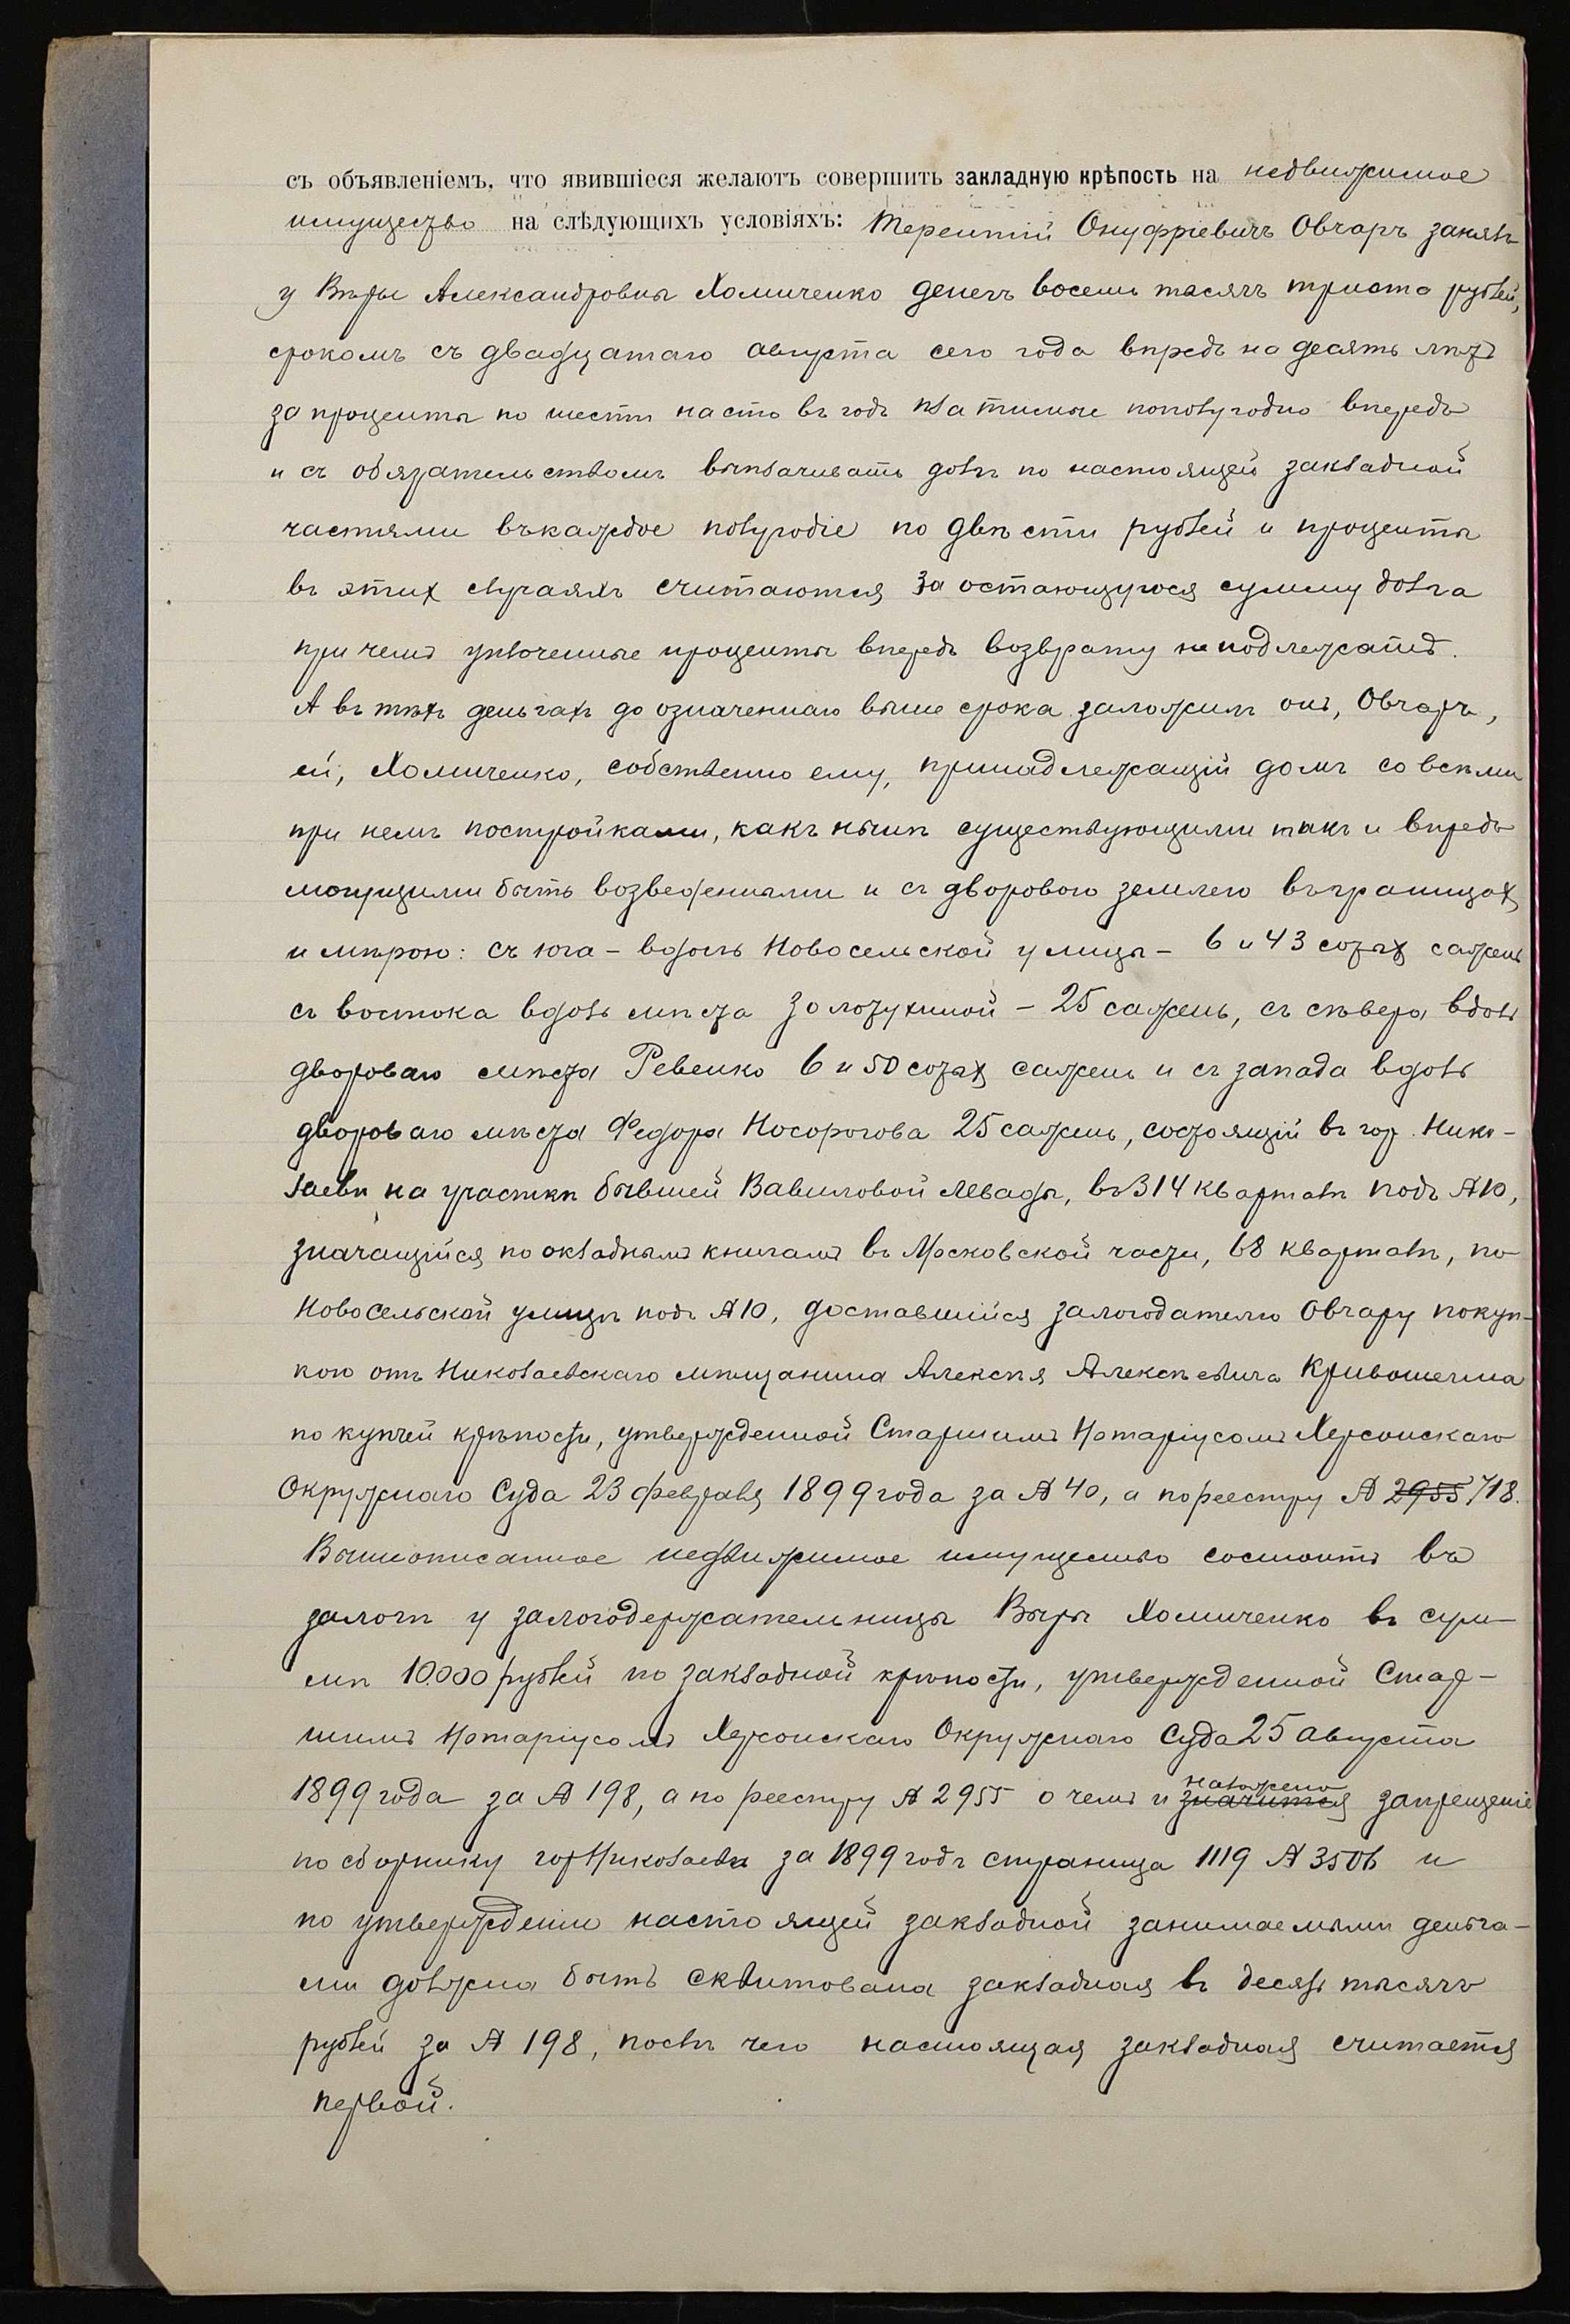 съ объявленіемъ, что явившіеся желаютъ совершить закладную крѣпость на недвижимое
имущество на слѣдующихъ условіяхъ: Терентій Онуфріевичъ Овчаръ занялъ
у Вѣры Александровны Хомиченко денегъ восемь тысячъ триста рублей,
срокомъ съ двадцатаго августа сего года впредь на десять лѣтъ
за проценты по шести на сто въ годъ платимые полугодно впередъ
и съ обязательствомъ выплачивать долгъ по настоящей закладной
частями въ каждое полугодіе по двѣсти рублей и проценты
въ этих случаяхъ считаются за остающуюся сумму долга
при чемъ уплоченные проценты впередъ возврату не подлежатъ.
А въ тѣхъ деньгахъ до означеннаго выше срока заложилъ онъ, Овчаръ,
ей, Хомиченко, собственно ему, принадлежащій домъ со всѣми
при немъ постройками, какъ нынѣ существующими такъ и впредь
могущими быть возведенными и съ дворовою землею въ границах
и мѣрою: съ юга - вдоль Новосельской улицы - 6 и 43 сотых сажень
съ востока вдоль мѣста Золотухиной - 25 сажень, съ сѣвера вдоль
двороваго мѣста Ревенко 6 и 50 сотых сажень и съ запада вдоль
двороваго мѣста Федора Носорогова 25 сажень, состоящій въ гор. Нико-
лаевѣ на участкѣ бывшей Вавиловой левады, въ 314 кварталѣ подъ № 10,
значащійся по окладнымъ книгамъ въ Московской части, 68 кварталѣ, по
Новосельской улицѣ подъ № 10, доставшійся залогодателю Овчару покуп-
кою отъ Николаевскаго мѣщанина Алексѣя Алексѣевича Кривошеина
по купчей крѣпости, утвержденной Старшимъ Нотаріусомъ Херсонскаго
Окружнаго Суда 23 февраля 1899 года за № 40, а по реестру № 2955 718.
Вышеописанное недвижимое имущество состоитъ въ
залогѣ у залогодержательницы Вѣры Хомиченко въ сум-
мѣ 10.000 рублей по закладной крѣпости, утвержденной Стар-
шимъ Нотаріусомъ Херсонскаго Окружнаго Суда 25 Августа
1899 года за № 198, а по реестру № 2955 о чемъ и значится наложено запрещеніе
по сборнику гор Николаева за 1899 годъ страница 1119 № 3506 и
по утвержденіи настоящей закладной занимаемыми деньга-
ми должна быть сквитована закладная въ десять тысячъ
рублей за № 198, послѣ чего настоящая закладная считается
первой.